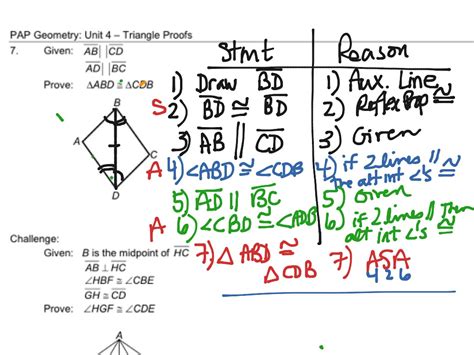 PAP Geometry: Unit 4 – Triangle Proofs
7. Given: AB || CD
AD || BC
Prove: ΔABD ≅ ΔCDB
B
A
C
D
Stmt Reason
1) Draw BD 1) Aux. Line
S 2) BD ≅ BD 2) Reflex Prop ≅
3) AB || CD 3) Given
A 4) ∠ABD ≅ ∠CDB 4) if 2 lines // the alt int ∠'s ≅
5) AD || BC 5) Given
A 6) ∠CBD ≅ ∠ADB 6) if 2 lines // Then alt int ∠'s ≅
7) Δ ABD ≅ Δ CDB 7) ASA
4 2 6
Challenge:
Given: B is the midpoint of HC
AB ⊥ HC
∠HBF ≅ ∠CBE
GH ≅ CD
Prove: ∠HGF ≅ ∠CDE
A